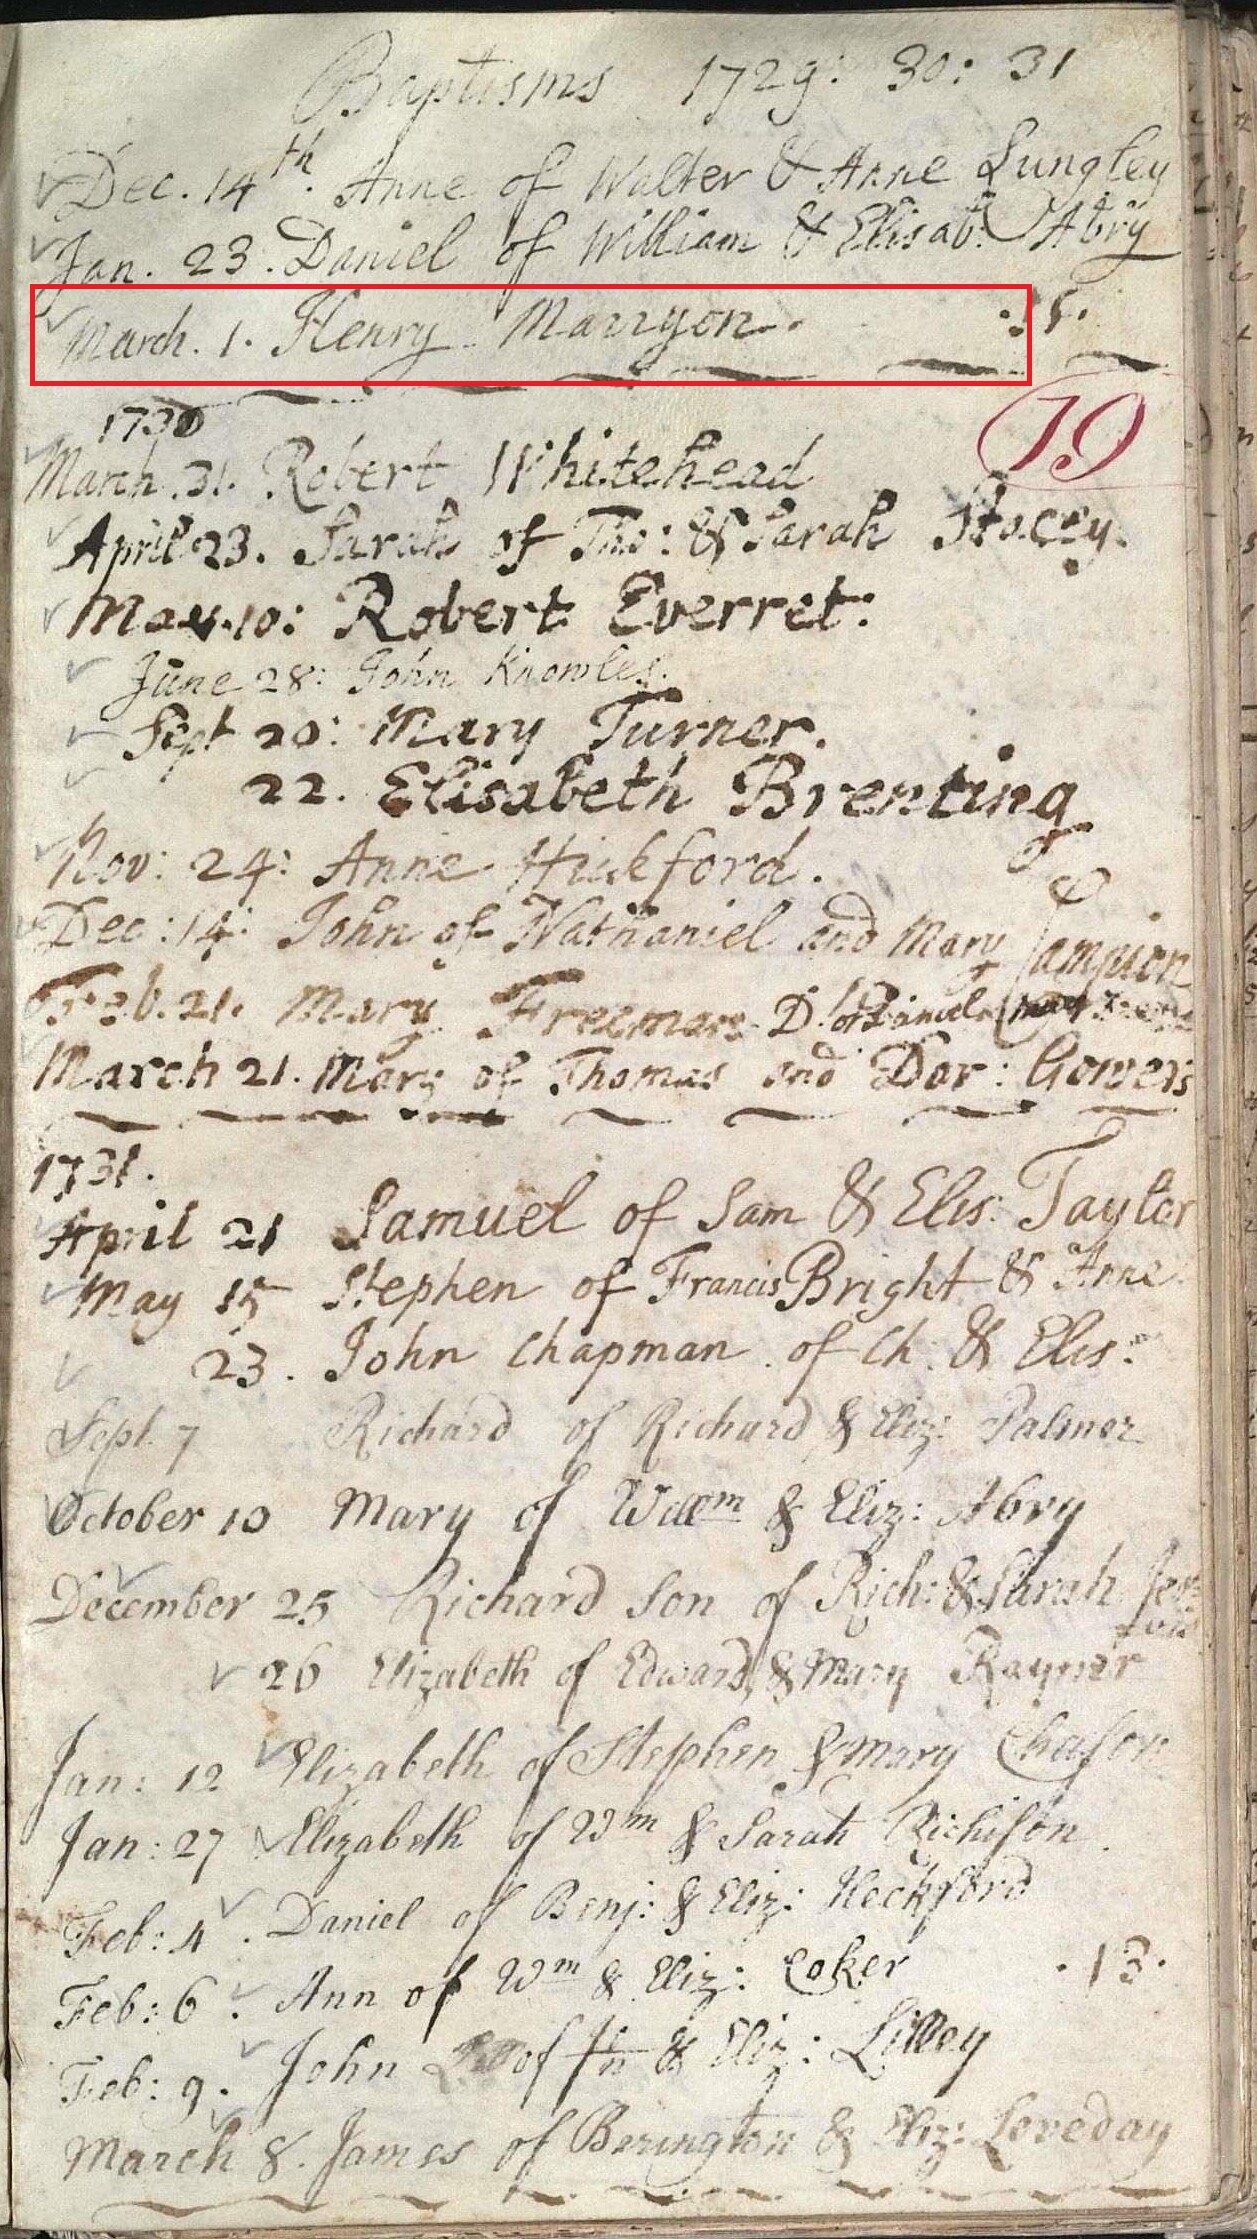 Baptisms 1729: 30: 31
Dec. 14th. Anne of Walter & Anne Lungley
Jan. 23. Daniel of William & Elisab: Abry
March. 1. Henry Marryon.
1730
March. 31. Robert Whitehead
19
April 23. Sarah of Tho: & Sarah Stacey.
May. 10: Robert Everret:
June 28: John Knowles.
Sept 20: Mary Turner.
22. Elisabeth Brenting
Nov: 24: Anne Huckford.
Dec: 14: John of Nathaniel and Mary
Feb. 21. Mary Freeman D. of Daniel
March 21. Mary of Thomas and Dor: Gowers
1731.
April 21 Samuel of Sam & Elis: Taylor
May 15 Stephen of Francis Bright & Anne
23. John Chapman of Ch: & Elis:
Sept. 7 Richard of Richard & Eliz: Palmer
October 10 Mary of Willm & Eliz: Abry
December 25 Richard Son of Rich: & Sarah
26 Elizabeth of Edward & Mary Rayner
Jan: 12 Elizabeth of Stephen & Mary Chason
Jan: 27 Elizabeth of Wm & Sarah Richison
Feb: 4. Daniel of Benj: & Eliz: Heckford
Feb: 6. Ann of Wm & Eliz: Coker · 13 ·
Feb: 9. John of Jn & Eliz: Lilley
March 8. James of Berington & Eliz: Loveday